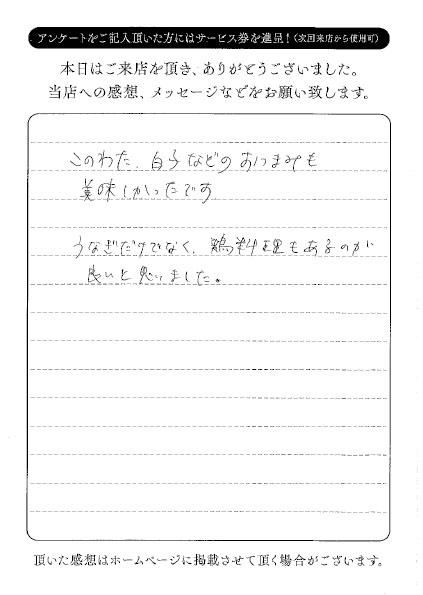 アンケートをご記入頂いた方にはサービス券を進呈!(次回来店から使用可)
本日はご来店を頂き、ありがとうございました。
当店への感想、メッセージなどをお願い致します。
このわた、白子などのおつまみも
美味しかったです
うなぎだけでなく、鶏料理もあるのが
良いと思いました。
頂いた感想はホームページに掲載させて頂く場合がございます。